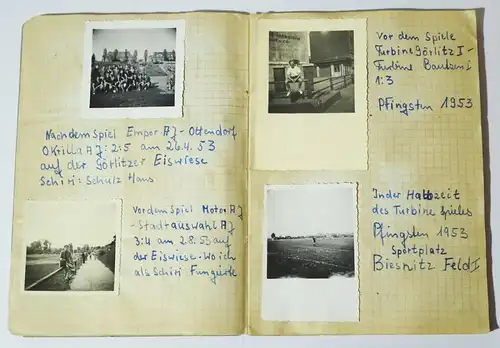 Nach dem Spiel Empor AJ - Ottendorf
Okrilla AJ: 2:5 am 26.4.53
auf der Görlitzer Eiswiese
Schiri: Schulz Hans
Vor dem Spiel Motor AJ
- Stadtauswahl AJ
3:4 am 2.8.53 auf
der Eiswiese. Wo ich
als Schiri Fungierte
Vor dem Spiele
Turbine Görlitz I -
Turbine Bautzen I
1:3
Pfingsten 1953
In der Halbzeit
des Turbine spieles
Pfingsten 1953
Sportplatz
Biesnitz Feld I